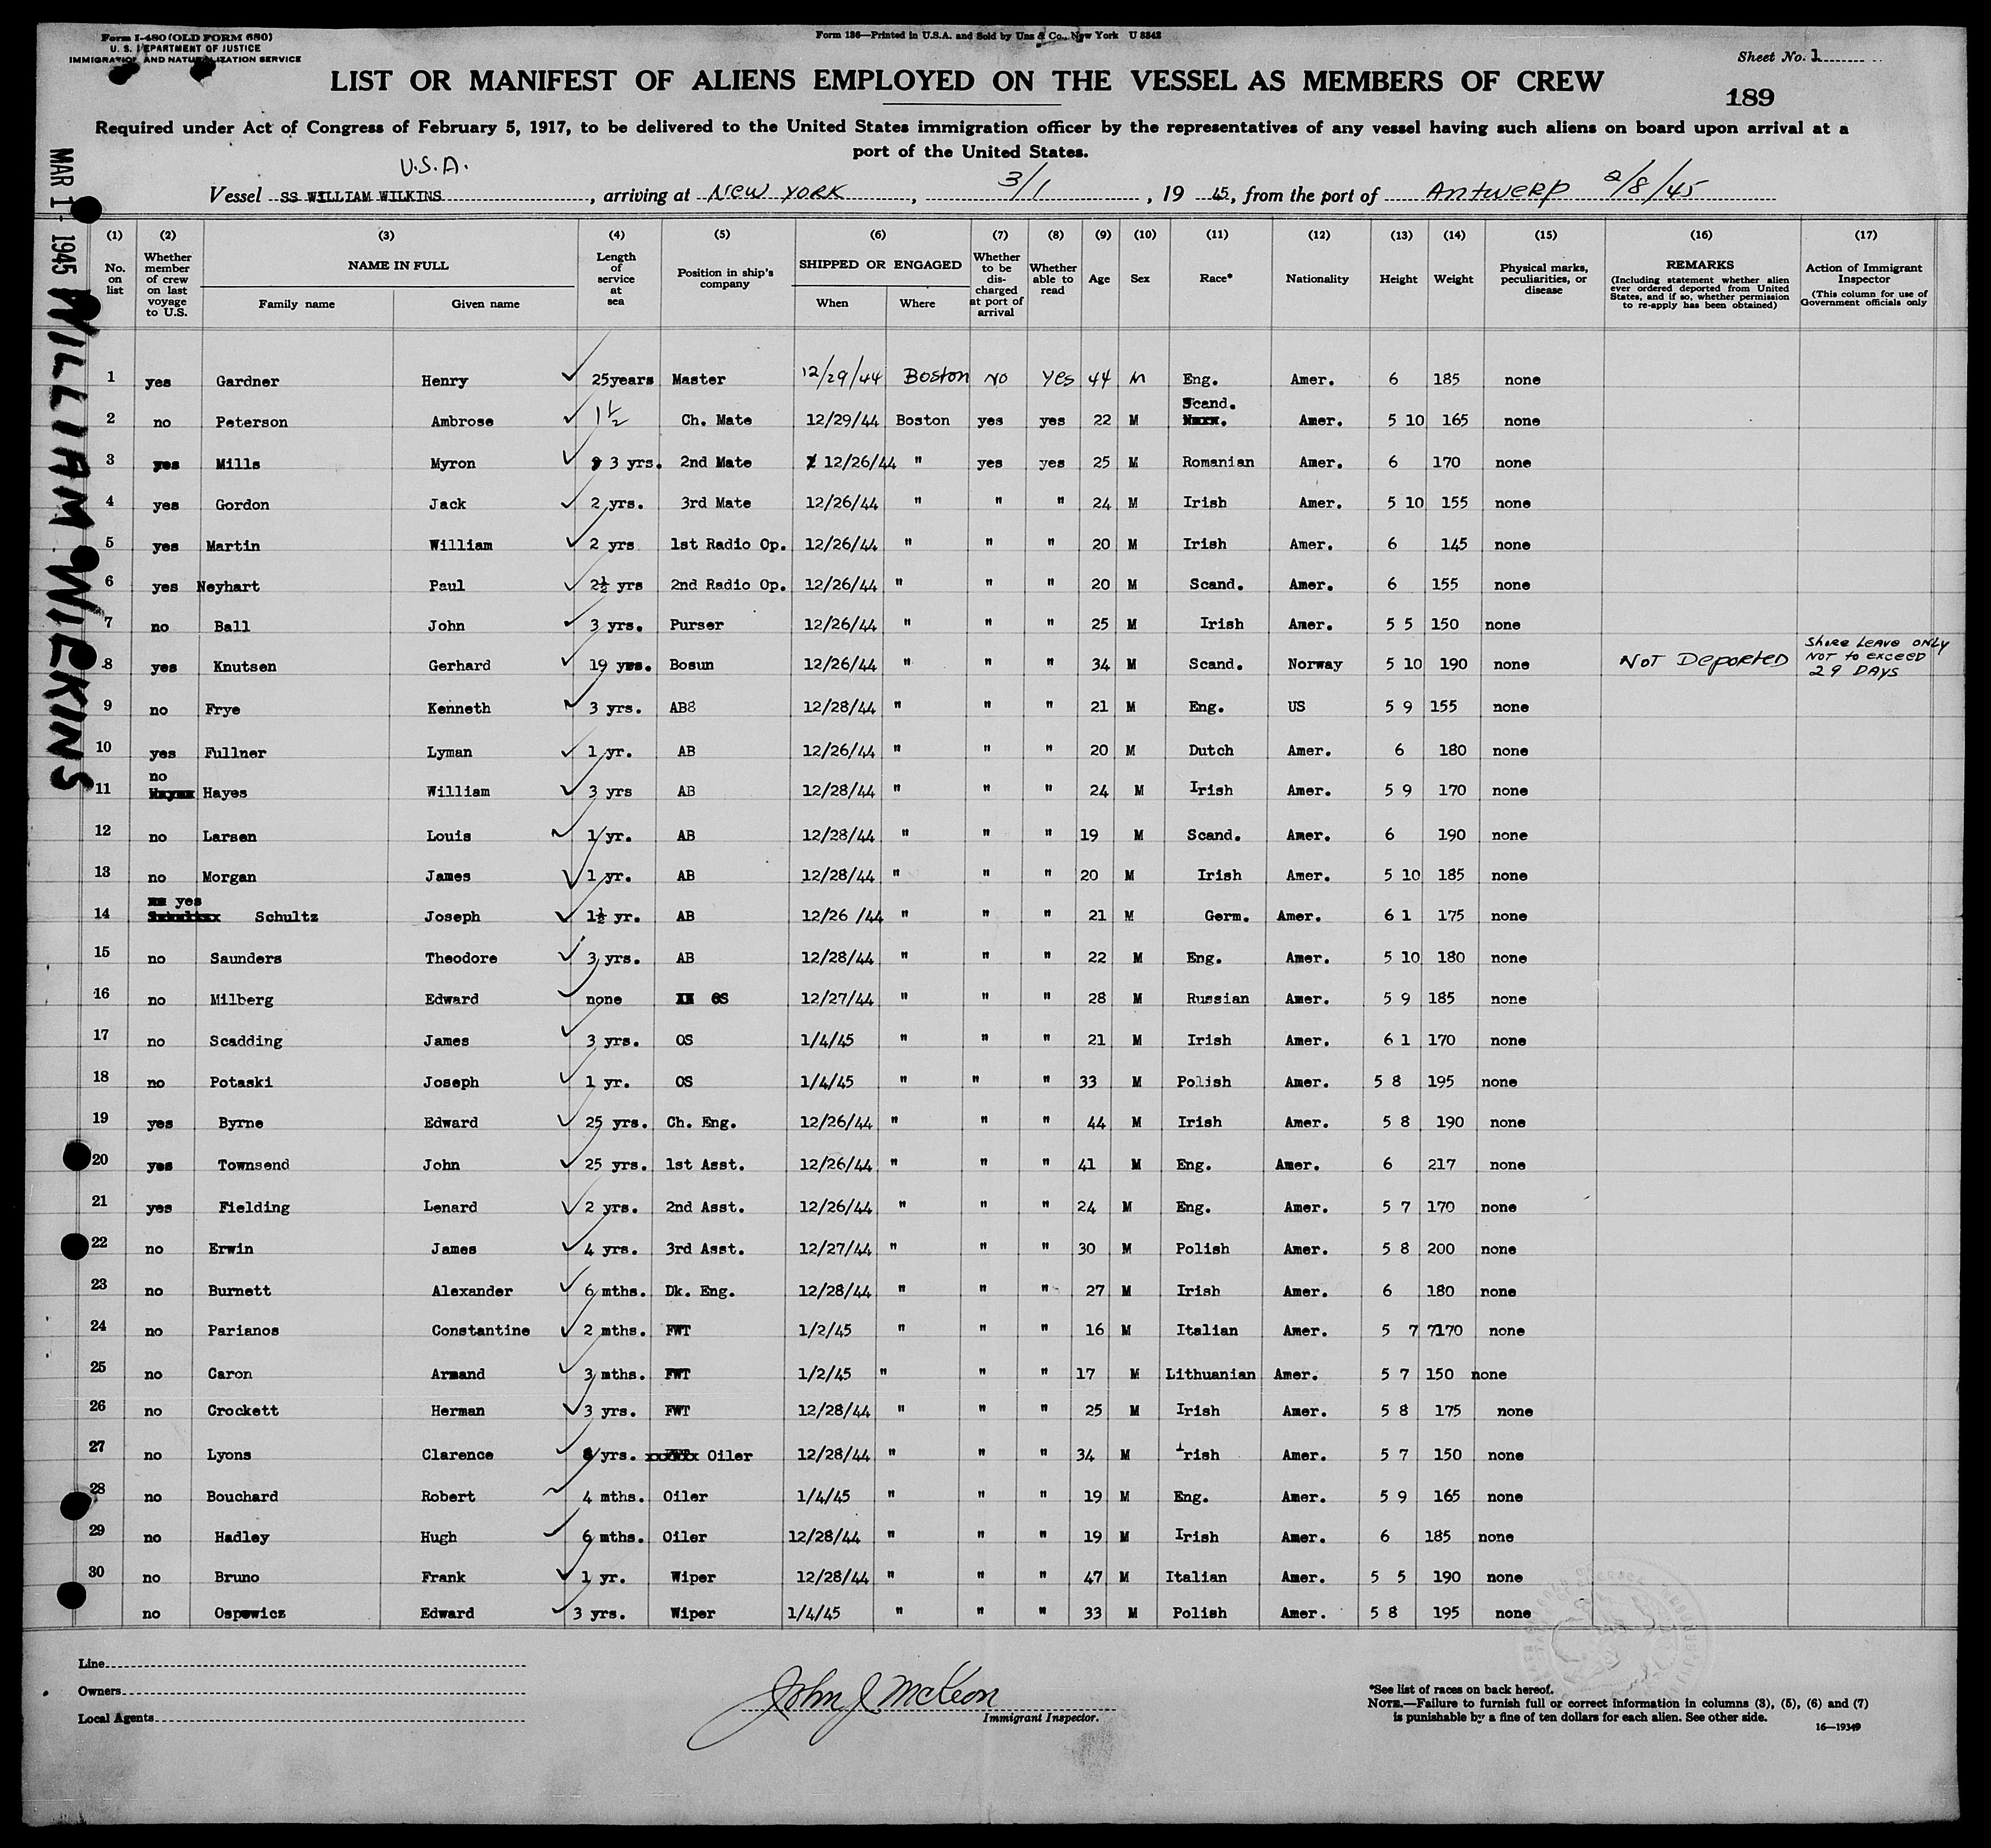 Form I-480 (OLD FORM 680)
U. S. DEPARTMENT OF JUSTICE
IMMIGRATION AND NATURALIZATION SERVICE
Form 186—Printed in U.S.A. and Sold by Unz & Co., New York U 8842
Sheet No. 1
LIST OR MANIFEST OF ALIENS EMPLOYED ON THE VESSEL AS MEMBERS OF CREW
189
Required under Act of Congress of February 5, 1917, to be delivered to the United States immigration officer by the representatives of any vessel having such aliens on board upon arrival at a
port of the United States.
U.S.A.
Vessel SS WILLIAM WILKINS, arriving at NEW YORK, 3/1, 19 45, from the port of ANTWERP 2/8/45
MAR 1 - 1945 WILLIAM WILKINS
(1) (2) (3) (4) (5) (6) (7) (8) (9) (10) (11) (12) (13) (14) (15) (16) (17)
No. on list
Whether member of crew on last voyage to U.S.
NAME IN FULL
Family name Given name
Length of service at sea
Position in ship's company
SHIPPED OR ENGAGED
When Where
Whether to be discharged at port of arrival
Whether able to read
Age
Sex
Race*
Nationality
Height
Weight
Physical marks, peculiarities, or disease
REMARKS
(Including statement whether alien ever ordered deported from United States, and if so, whether permission to re-apply has been obtained)
Action of Immigrant Inspector
(This column for use of Government officials only
1 yes Gardner Henry 25years Master 12/29/44 Boston NO Yes 44 M Eng. Amer. 6 185 none
2 no Peterson Ambrose 1½ Ch. Mate 12/29/44 Boston yes yes 22 M Scand. Amer. 5 10 165 none
3 yes Mills Myron 3 yrs. 2nd Mate 12/26/44 " yes yes 25 M Romanian Amer. 6 170 none
4 yes Gordon Jack 2 yrs. 3rd Mate 12/26/44 " " " 24 M Irish Amer. 5 10 155 none
5 yes Martin William 2 yrs 1st Radio Op. 12/26/44 " " " 20 M Irish Amer. 6 145 none
6 yes Neyhart Paul 2½ yrs 2nd Radio Op. 12/26/44 " " " 20 M Scand. Amer. 6 155 none
7 no Ball John 3 yrs. Purser 12/26/44 " " " 25 M Irish Amer. 5 5 150 none
8 yes Knutsen Gerhard 19 yrs. Bosun 12/26/44 " " " 34 M Scand. Norway 5 10 190 none NOT DEPORTED SHORE LEAVE ONLY NOT TO EXCEED 29 DAYS
9 no Frye Kenneth 3 yrs. AB 12/28/44 " " " 21 M Eng. US 5 9 155 none
10 yes Fullner Lyman 1 yr. AB 12/26/44 " " " 20 M Dutch Amer. 6 180 none
11 no Hayes William 3 yrs AB 12/28/44 " " " 24 M Irish Amer. 5 9 170 none
12 no Larsen Louis 1 yr. AB 12/28/44 " " " 19 M Scand. Amer. 6 190 none
13 no Morgan James 1 yr. AB 12/28/44 " " " 20 M Irish Amer. 5 10 185 none
14 yes Schultz Joseph 1½ yr. AB 12/26 /44 " " " 21 M Germ. Amer. 6 1 175 none
15 no Saunders Theodore 3 yrs. AB 12/28/44 " " " 22 M Eng. Amer. 5 10 180 none
16 no Milberg Edward none OS 12/27/44 " " " 28 M Russian Amer. 5 9 185 none
17 no Scadding James 3 yrs. OS 1/4/45 " " " 21 M Irish Amer. 6 1 170 none
18 no Potaski Joseph 1 yr. OS 1/4/45 " " " 33 M Polish Amer. 5 8 195 none
19 yes Byrne Edward 25 yrs. Ch. Eng. 12/26/44 " " " 44 M Irish Amer. 5 8 190 none
20 yes Townsend John 25 yrs. 1st Asst. 12/26/44 " " " 41 M Eng. Amer. 6 217 none
21 yes Fielding Lenard 2 yrs. 2nd Asst. 12/26/44 " " " 24 M Eng. Amer. 5 7 170 none
22 no Erwin James 4 yrs. 3rd Asst. 12/27/44 " " " 30 M Polish Amer. 5 8 200 none
23 no Burnett Alexander 6 mths. Dk. Eng. 12/28/44 " " " 27 M Irish Amer. 6 180 none
24 no Parianos Constantine 2 mths. FWT 1/2/45 " " " 16 M Italian Amer. 5 7 170 none
25 no Caron Armand 3 mths. FWT 1/2/45 " " " 17 M Lithuanian Amer. 5 7 150 none
26 no Crockett Herman 3 yrs. FWT 12/28/44 " " " 25 M Irish Amer. 5 8 175 none
27 no Lyons Clarence yrs. Oiler 12/28/44 " " " 34 M Irish Amer. 5 7 150 none
28 no Bouchard Robert 4 mths. Oiler 1/4/45 " " " 19 M Eng. Amer. 5 9 165 none
29 no Hadley Hugh 6 mths. Oiler 12/28/44 " " " 19 M Irish Amer. 6 185 none
30 no Bruno Frank 1 yr. Wiper 12/28/44 " " " 47 M Italian Amer. 5 5 190 none
no Ospowicz Edward 3 yrs. Wiper 1/4/45 " " " 33 M Polish Amer. 5 8 195 none
Line
Owners
Local Agents
John J McKeon
Immigrant Inspector.
*See list of races on back hereof.
NOTE.—Failure to furnish full or correct information in columns (3), (5), (6) and (7)
is punishable by a fine of ten dollars for each alien. See other side.
16—19349